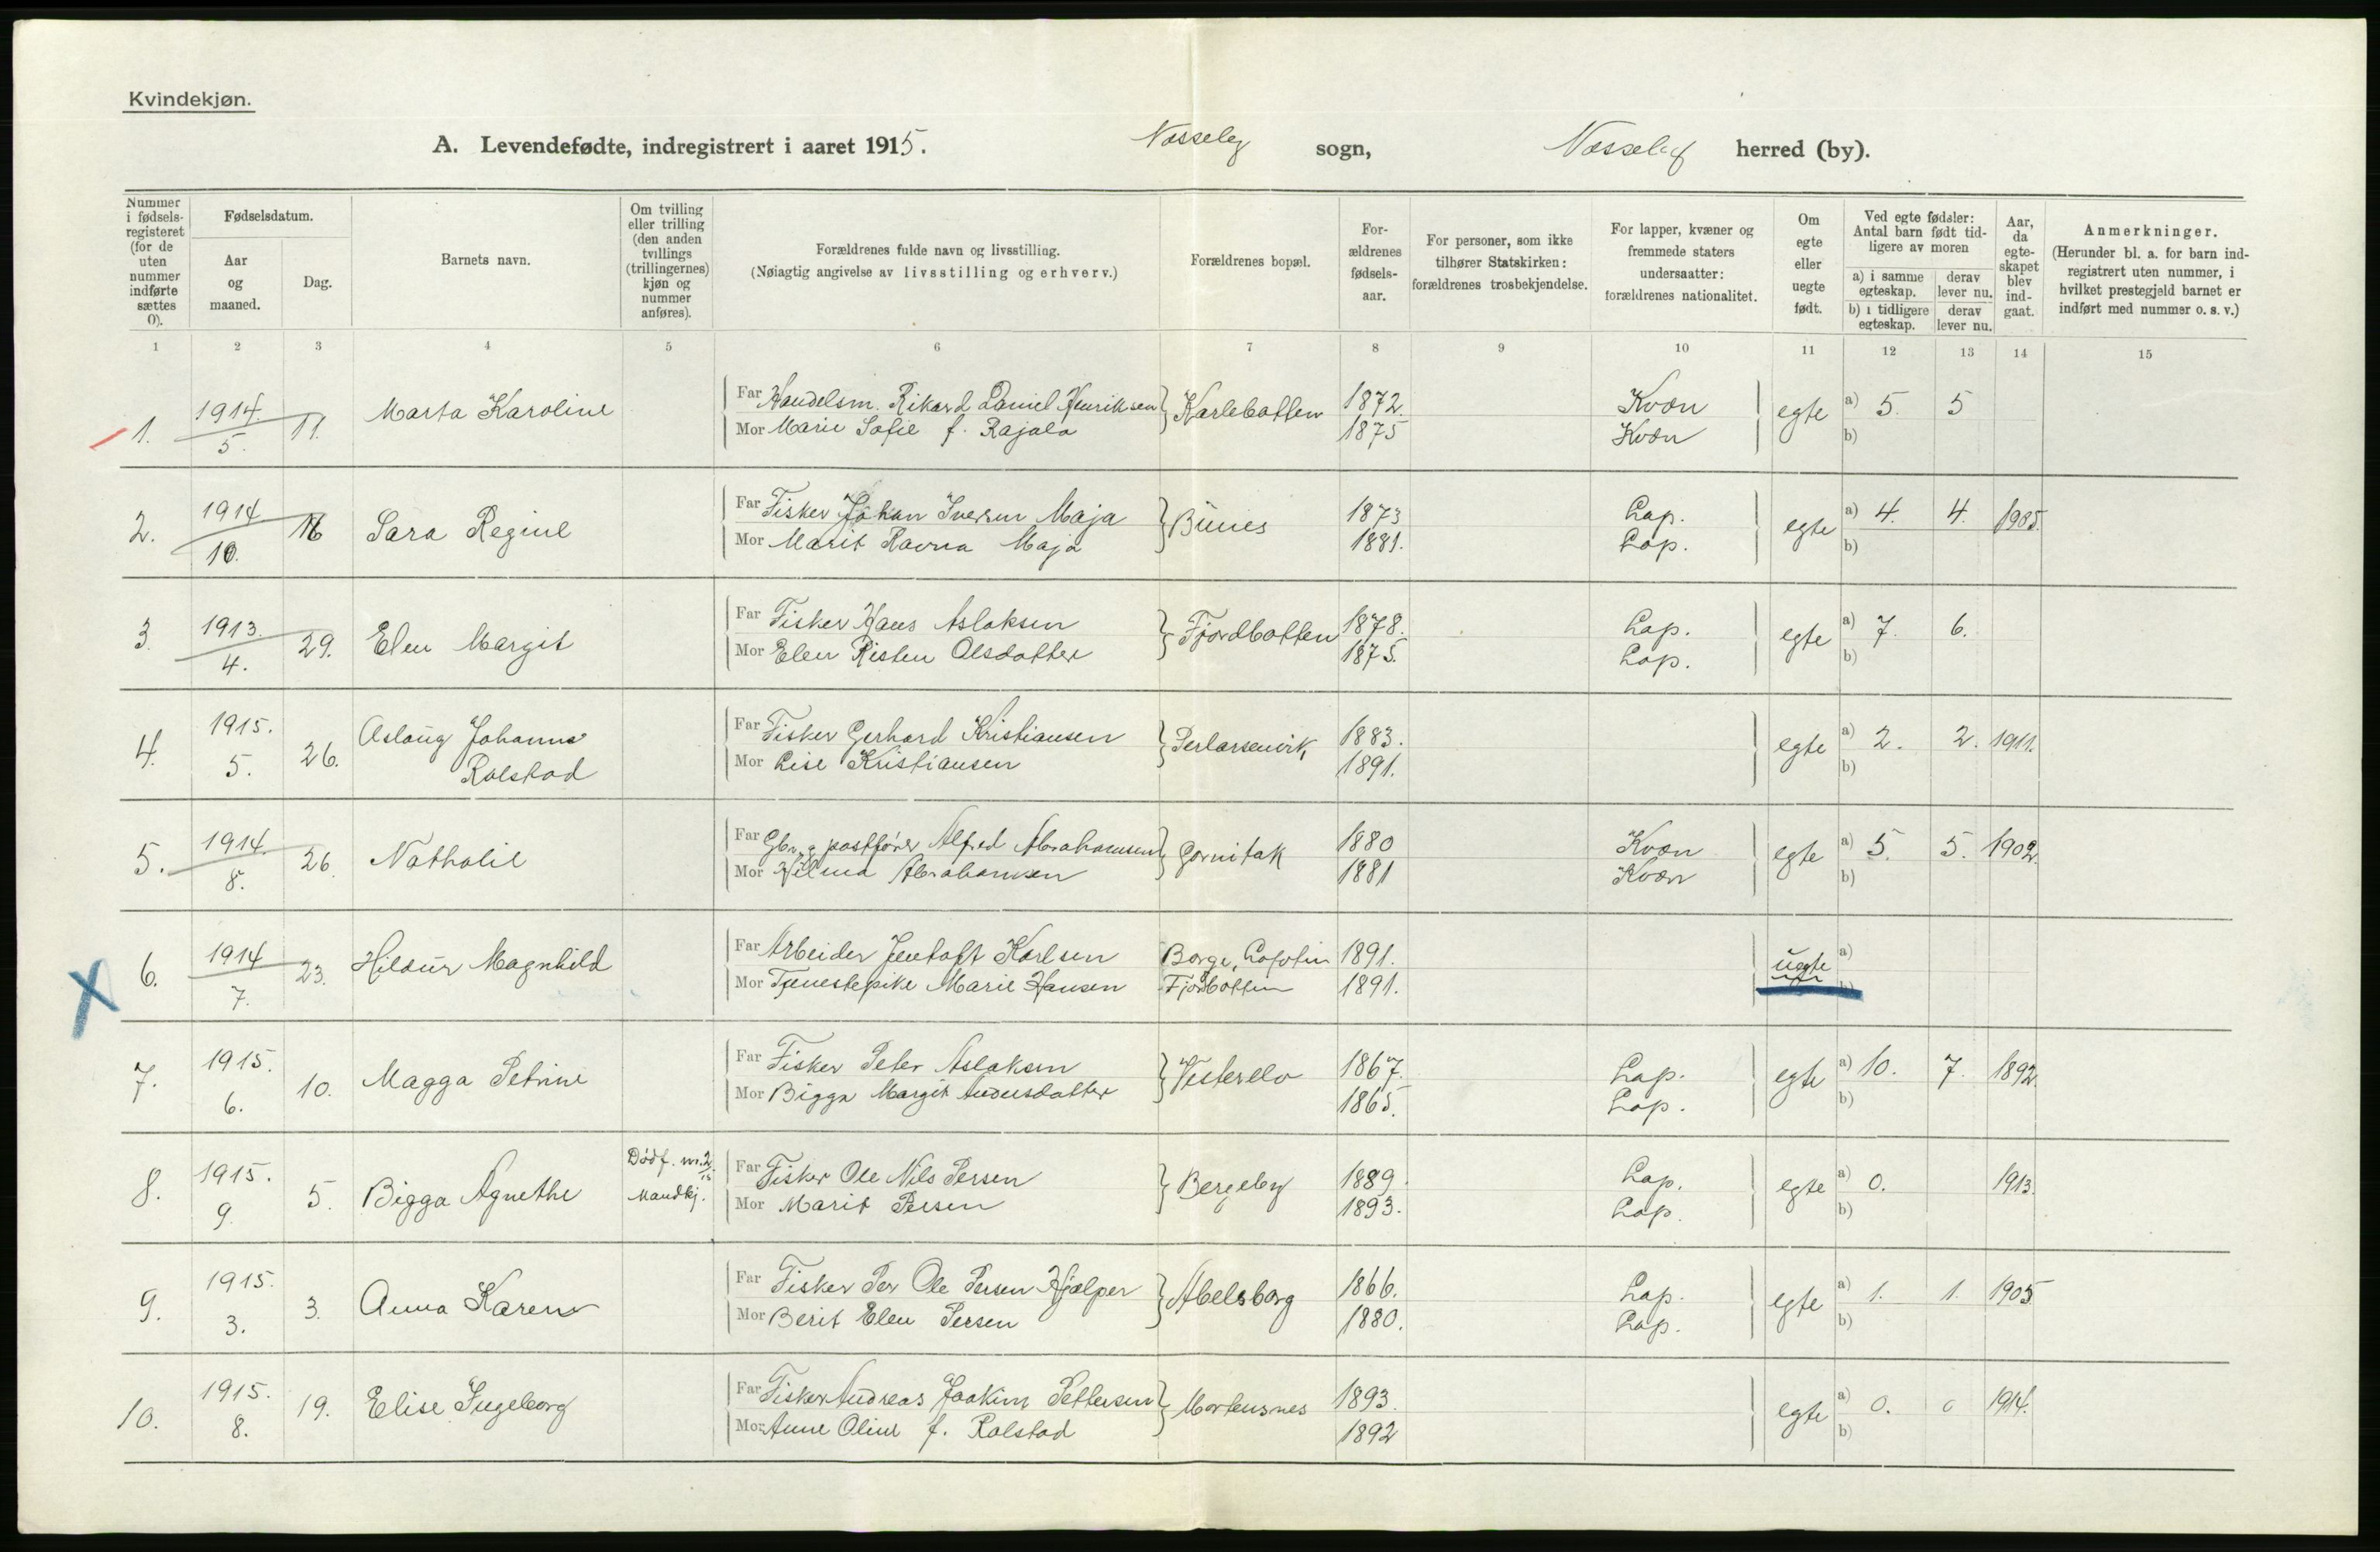 Kvindekjøn.
A. Levendefødte, indregistrert i aaret 1915. Nesseby sogn, Nesseby herred (by).
Nummer i fødsels-registeret (for de uten nummer indførte sættes 0).
Fødselsdatum.
Aar og maaned.
Dag.
Barnets navn.
Om tvilling eller trilling (den anden tvillings (trillingernes) kjøn og nummer anføres).
Forældrenes fulde navn og livsstilling.
(Nøiagtig angivelse av livsstilling og erhverv.)
Forældrenes bopæl.
For-ældrenes fødsels-aar.
For personer, som ikke tilhører Statskirken: forældrenes trosbekjendelse.
For lapper, kvæner og fremmede staters undersaatter: forældrenes nationalitet.
Om egte eller uegte født.
Ved egte fødsler: Antal barn født tid-ligere av moren
a) i samme egteskap. derav lever nu.
b) i tidligere egteskap. derav lever nu.
Aar, da egte-skapet blev ind-gaat.
Anmerkninger.
(Herunder bl. a. for barn ind-registrert uten nummer, i hvilket prestegjeld barnet er indført med nummer o. s. v.)
1 2 3 4 5 6 7 8 9 10 11 12 13 14 15
1. 1914. 5. 11. Marta Karoline Far Handelsm. Rikard Daniel Henriksen Karlebotten 1872. Kvæn egte a) 5. 5
Mor Marie Sofie f. Rajala 1875 Kvæn b)
2. 1914 10. 16 Sara Regine Far Fisker Johan Iversen Maja Bunes 1873 Lap. egte a) 4. 4. 1905.
Mor Marit Ravna Maja 1881. Lap. b)
3. 1913. 4. 29. Elen Margit Far Fisker Hans Aslaksen Fjordbotten 1878. Lap. egte a) 7. 6.
Mor Elen Risten Olsdatter 1875. Lap. b)
4. 1915. 5. 26. Aslaug Johanne Rolstad Far Fisker Gerhard Kristiansen Perlarsenvik 1883. egte a) 2. 2. 1911.
Mor Lise Kristiansen 1891. b)
5. 1914. 8. 26. Nathalie Far Gbr. og postfører Alfred Abrahamsen Gornitak 1880 Kvæn egte a) 5. 5. 1902.
Mor Hilma Abrahamsen 1881 Kvæn b)
6. 1914 7. 23. Hildur Magnhild Far Arbeider Jentoft Karlsen Borge, Lofoten 1891. uegte a)
Mor Tjenestepike Marie Hansen Fjordbotten 1891. b)
7. 1915. 6. 10. Magga Petrine Far Fisker Peter Aslaksen Vesterelv 1867. Lap. egte a) 10. 7. 1892.
Mor Bigga Margit Andersdatter 1865. Lap. b)
8. 1915. 9. 5. Bigga Agnethe Dødf. nr. 2/15 Mandkj. Far Fisker Ole Nils Persen Bergeby 1889. Lap. egte a) 0. 1913.
Mor Marit Persen 1893. Lap. b)
9. 1915. 3. 3. Anna Karen Far Fisker Per Ole Persen Hjælper Abelsborg 1866. Lap. egte a) 1. 1. 1905.
Mor Berit Elen Persen 1880. Lap. b)
10. 1915. 8. 19. Elise Ingeborg Far Fisker Andreas Joakim Pettersen Mortensnes 1893. egte a) 0. 0 1914.
Mor Anne Oline f. Rolstad 1892 b)